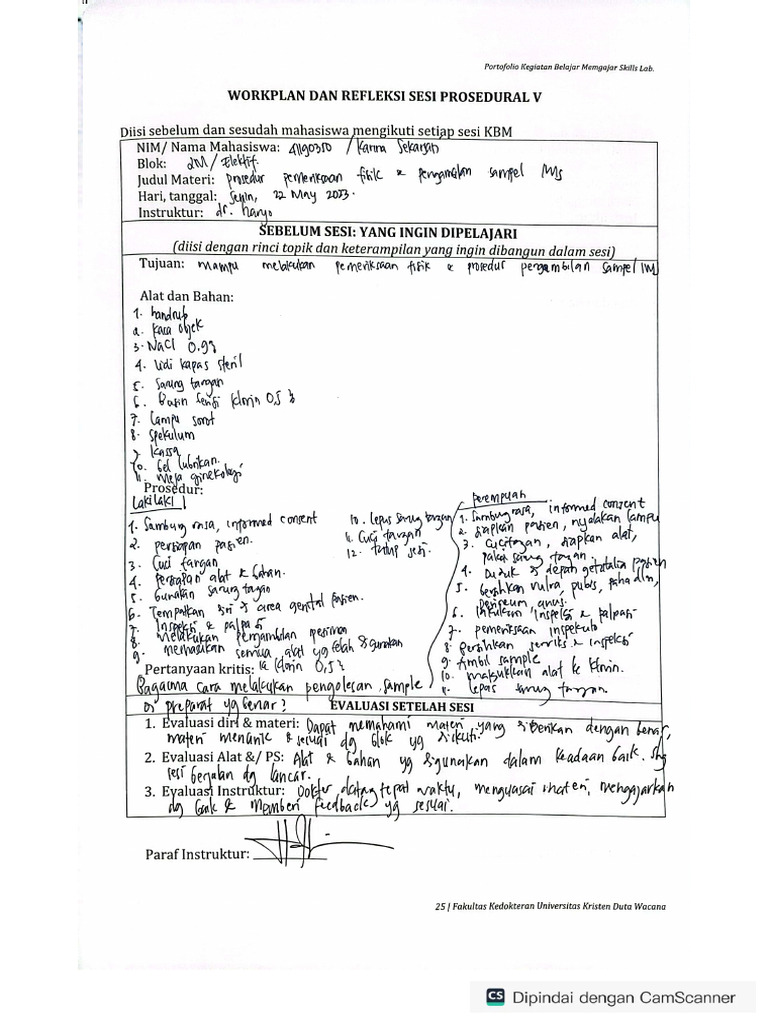 Portofolio Kegiatan Belajar Memgajar Skills Lab.
WORKPLAN DAN REFLEKSI SESI PROSEDURAL V
Diisi sebelum dan sesudah mahasiswa mengikuti setiap sesi KBM
NIM/ Nama Mahasiswa: 41190350 / Karina Sekarsari
Blok: DM/ Elektif.
Judul Materi: prosedur pemeriksaan fisik & pengambilan sampel IMS
Hari, tanggal: Senin, 22 May 2023.
Instruktur: dr. haryo
SEBELUM SESI: YANG INGIN DIPELAJARI
(diisi dengan rinci topik dan keterampilan yang ingin dibangun dalam sesi)
Tujuan: mampu melakukan pemeriksaan fisik & prosedur pengambilan sampel IMS
Alat dan Bahan:
1. handrub
2. kaca objek
3. NaCl 0.9%
4. Lidi kapas steril
5. Sarung tangan
6. klorin 0,5 %
7. Lampu sorot
8. Spekulum
9. Kassa
10. Gel lubrikan.
11. Meja ginekologi
Prosedur:
Laki laki
1. Sambung rasa, informed consent
2. persiapan pasien.
3. Cuci tangan
4. Persiapan alat & bahan.
5. Gunakan sarung tangan
6. Tempatkan diri di area genital pasien.
7. Inspeksi & palpasi
8. Melakukan pengambilan
9. memasukan semua alat yg telah digunakan
ke klorin 0,5%
10. Lepas sarung tangan
11. Cuci tangan
12. tutup sesi.
Perempuan
1. Sambung rasa, informed consent
2. siapkan pasien, nyalakan lampu
3. Cuci tangan, siapkan alat,
pakai sarung tangan.
4. Duduk di depan genitalia pasien
5. bersihkan vulva, pubis, paha dlm,
perineum, anus.
6. lakukan inspeksi & palpasi
7. pemeriksaan inspekulo
8. Bersihkan serviks & inspeksi
9. Ambil sample
10. masukkan alat ke klorin.
11. lepas sarung tangan.
Pertanyaan kritis:
Bagaimana cara melakukan pengolesan sample
di preparat yg benar?
EVALUASI SETELAH SESI
1. Evaluasi diri & materi: Dapat memahami materi yang diberikan dengan benar,
materi menarik & sesuai dg blok yg diikuti.
2. Evaluasi Alat &/ PS: Alat & bahan yg digunakan dalam keadaan baik. Shg
sesi berjalan dg lancar.
3. Evaluasi Instruktur: Dokter datang tepat waktu, menguasai materi, mengajarkan
dg baik & memberi feedback yg sesuai.
Paraf Instruktur:
25 | Fakultas Kedokteran Universitas Kristen Duta Wacana
CS Dipindai dengan CamScanner